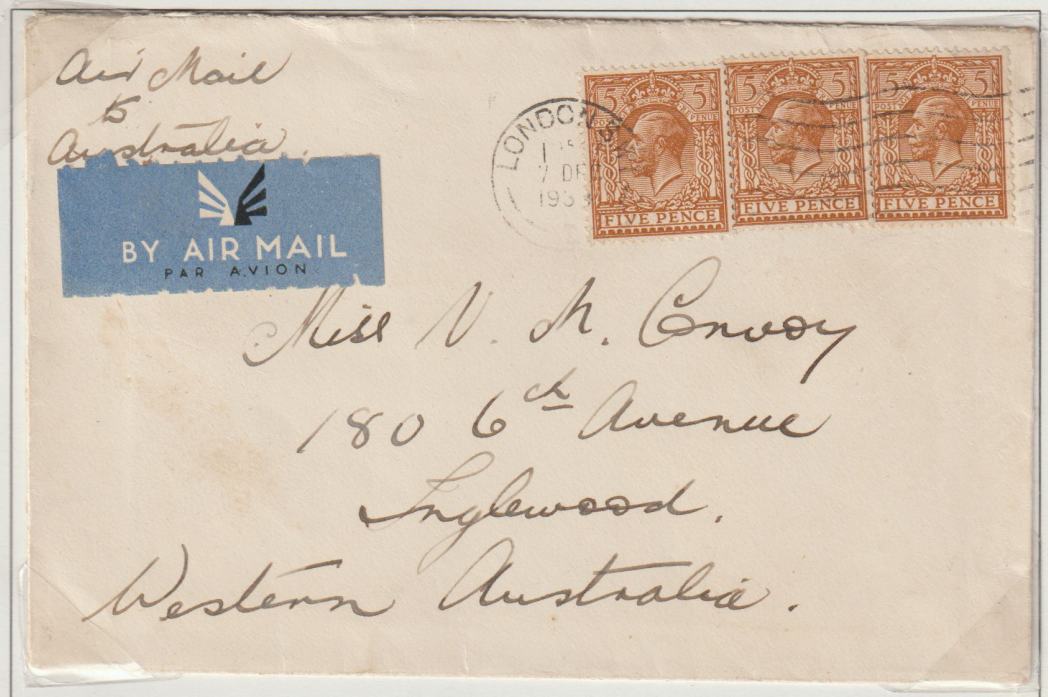 Air Mail
to
Australia.
BY AIR MAIL
PAR AVION
LONDON
7 DE
193
5 5
POSTAGE REVENUE
FIVE PENCE
5 5
POSTAGE REVENUE
FIVE PENCE
5 5
POSTAGE REVENUE
FIVE PENCE
Miss V. M. Convoy
180 6th Avenue
Inglewood.
Western Australia.